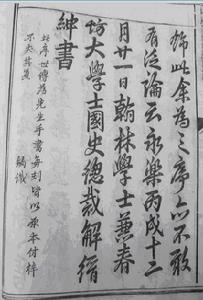 命此余為之序亦不敢
有泛論云永樂丙戌十二
月廿一日翰林學士兼春
坊大學士國史總裁解縉
紳書
此序世傳為先生手書每刻皆以原本付梓
不失其真
識